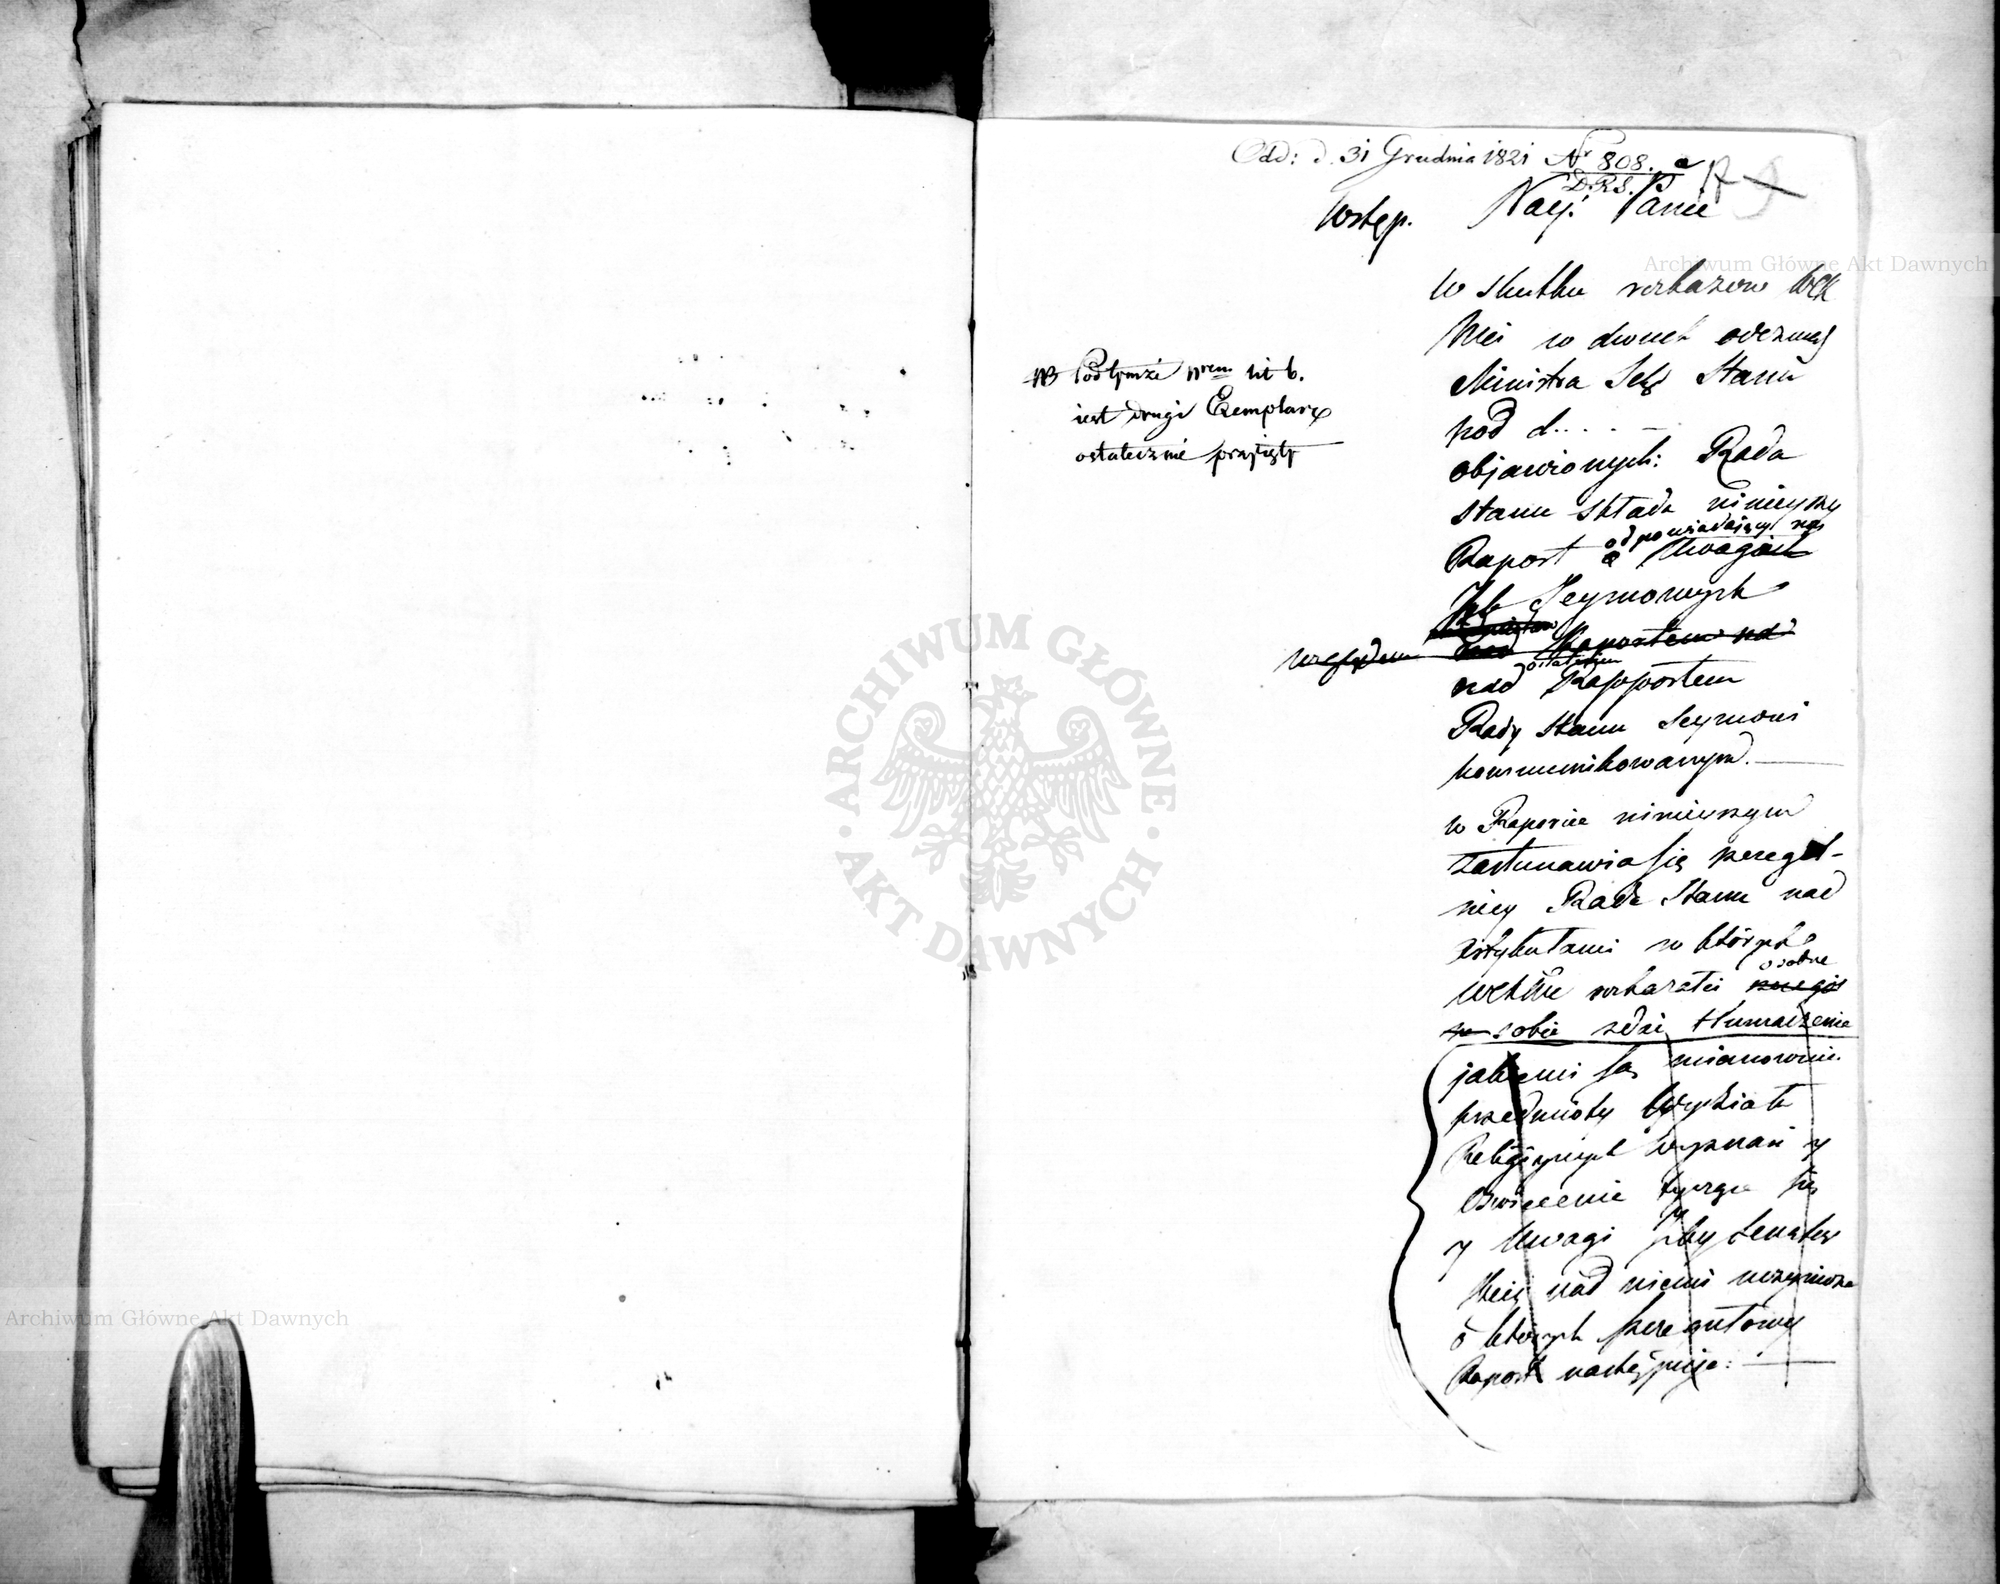 Odd: d. 31 Grudnia 1821 Nr 808. a
D.R.S.
Wstęp. Nay: Panie
W skutku rozkazow WCK
Mci w dwuch odezwach
Ministra Sekr Stanu
pod d....
objawionych: Rada
Stanu składa ninieyszy
odpowiadający na
Raport o Uwagach
Izb Seymowych
względem Raportem nad
ostatnim
nad Rapportem
Rady Stanu Seymowi
kommunikowanym.
NB Pod tymże Nrem lit b.
iest drugi Exemplarz
ostatecznie przyięty
w Raporcie ninieyszym
zastanawia się szczegól-
niey Rada Stanu nad
artykułami w których
osobne
WCKMć rozkazałeś szczegól
w sobie zdać tłumaczenie
jakiemi są mianowicie.
przedmioty Wydziału
Religiynych wyznań y
Oświecenia tyczące się
y Uwagi Izby Senator
skiey nad niemi uczynione
o których szczegułowy
Raport następuje:
Archiwum Główne Akt Dawnych
ARCHIWUM GŁÓWNE
AKT DAWNYCH
Archiwum Główne Akt Dawnych